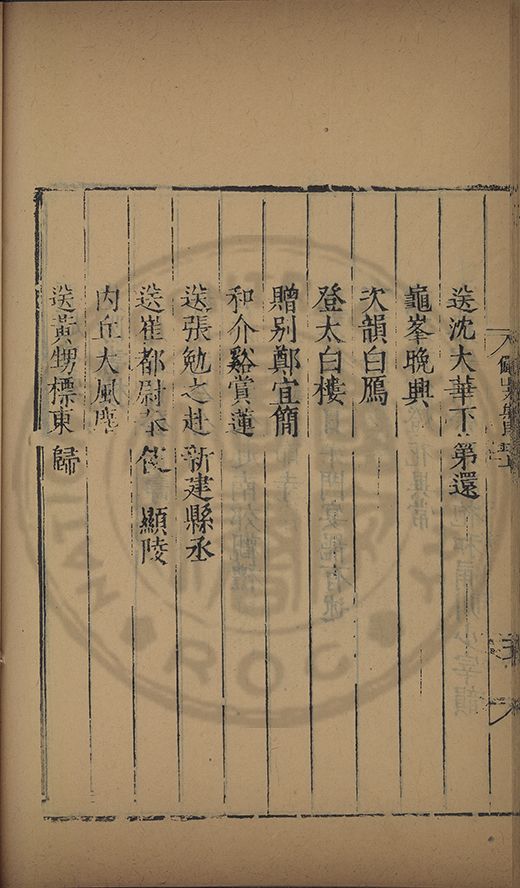 送沈大華下第還
龜峯晚興
次韻白鴈
登太白樓
贈别鄭宜簡
和介谿賞蓮
送張勉之赴新建縣丞
送崔都尉奉使 顯陵
内丘大風塵
送黃甥標東歸